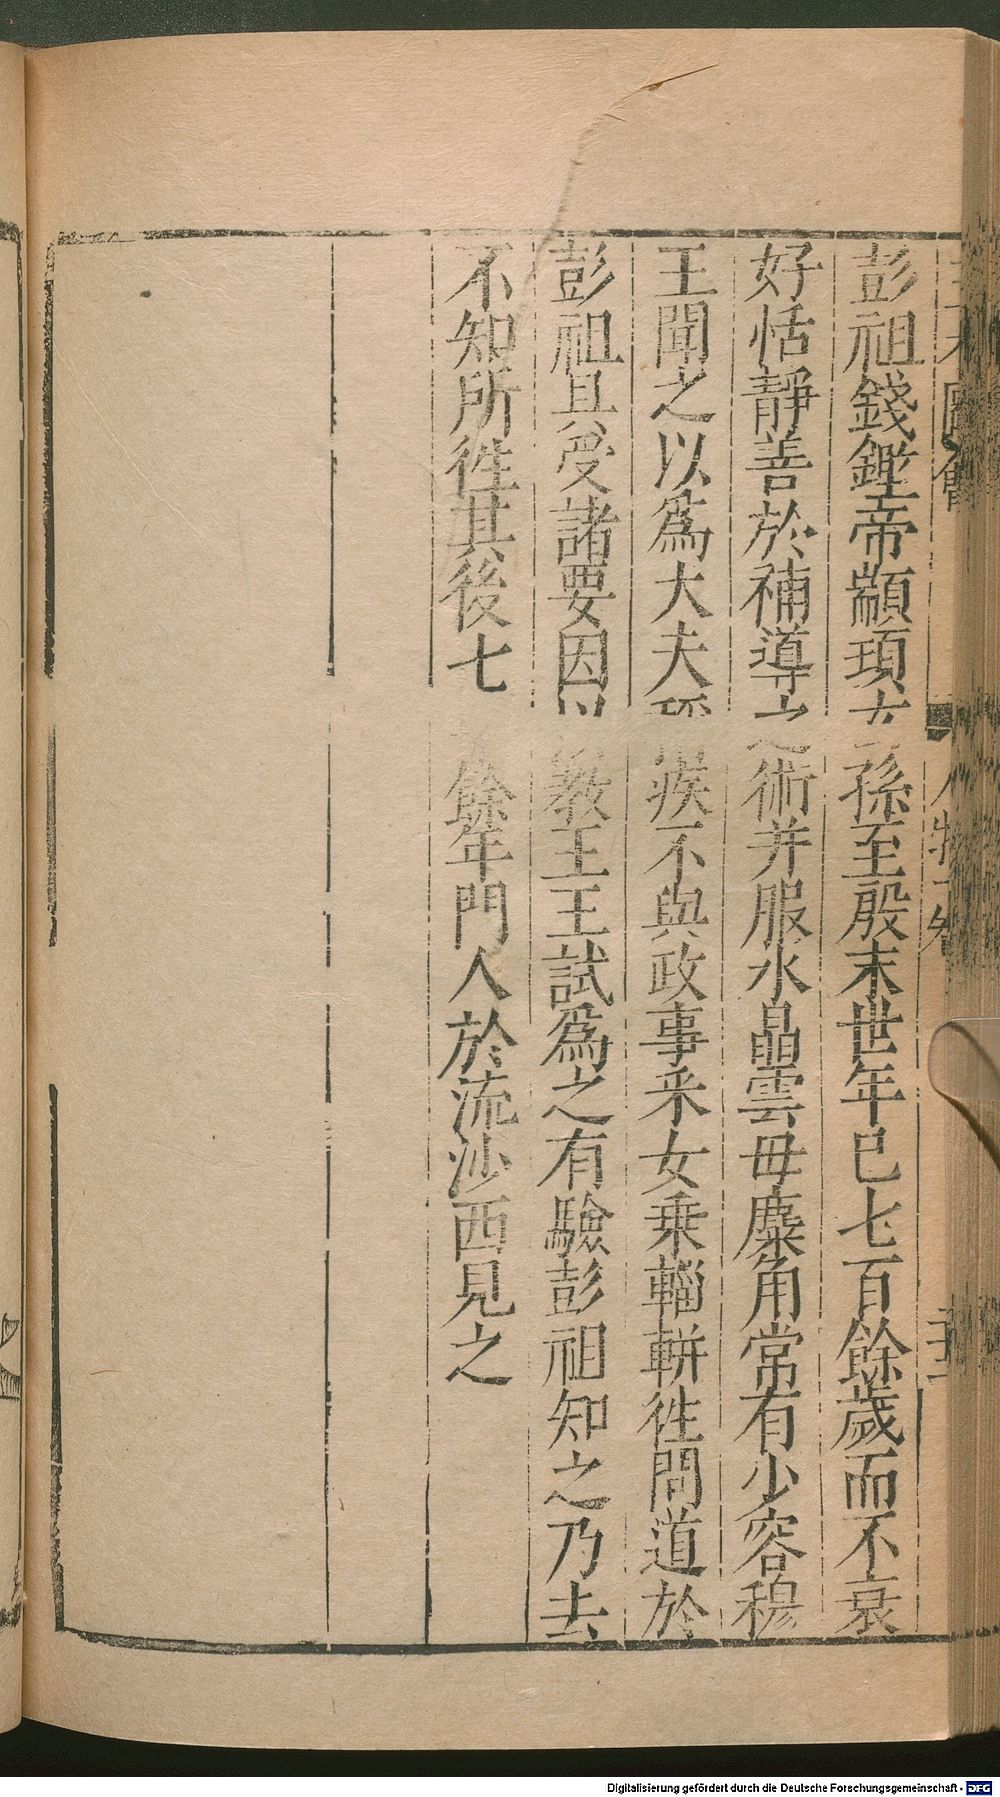 三才圖會 人物十卷 三十一
彭祖錢鏗帝顓頊玄孫至殷末世年已七百餘歲而不衰
好恬靜善於補導之術并服水晶雲母麋角常有少容穆
王聞之以爲大夫稱疾不與政事采女乗輜軿徃問道於
彭祖具受諸要因以教王王試爲之有驗彭祖知之乃去
不知所徃其後七餘年門人於流沙西見之
Digitalisierung gefördert durch die Deutsche Forschungsgemeinschaft - DFG